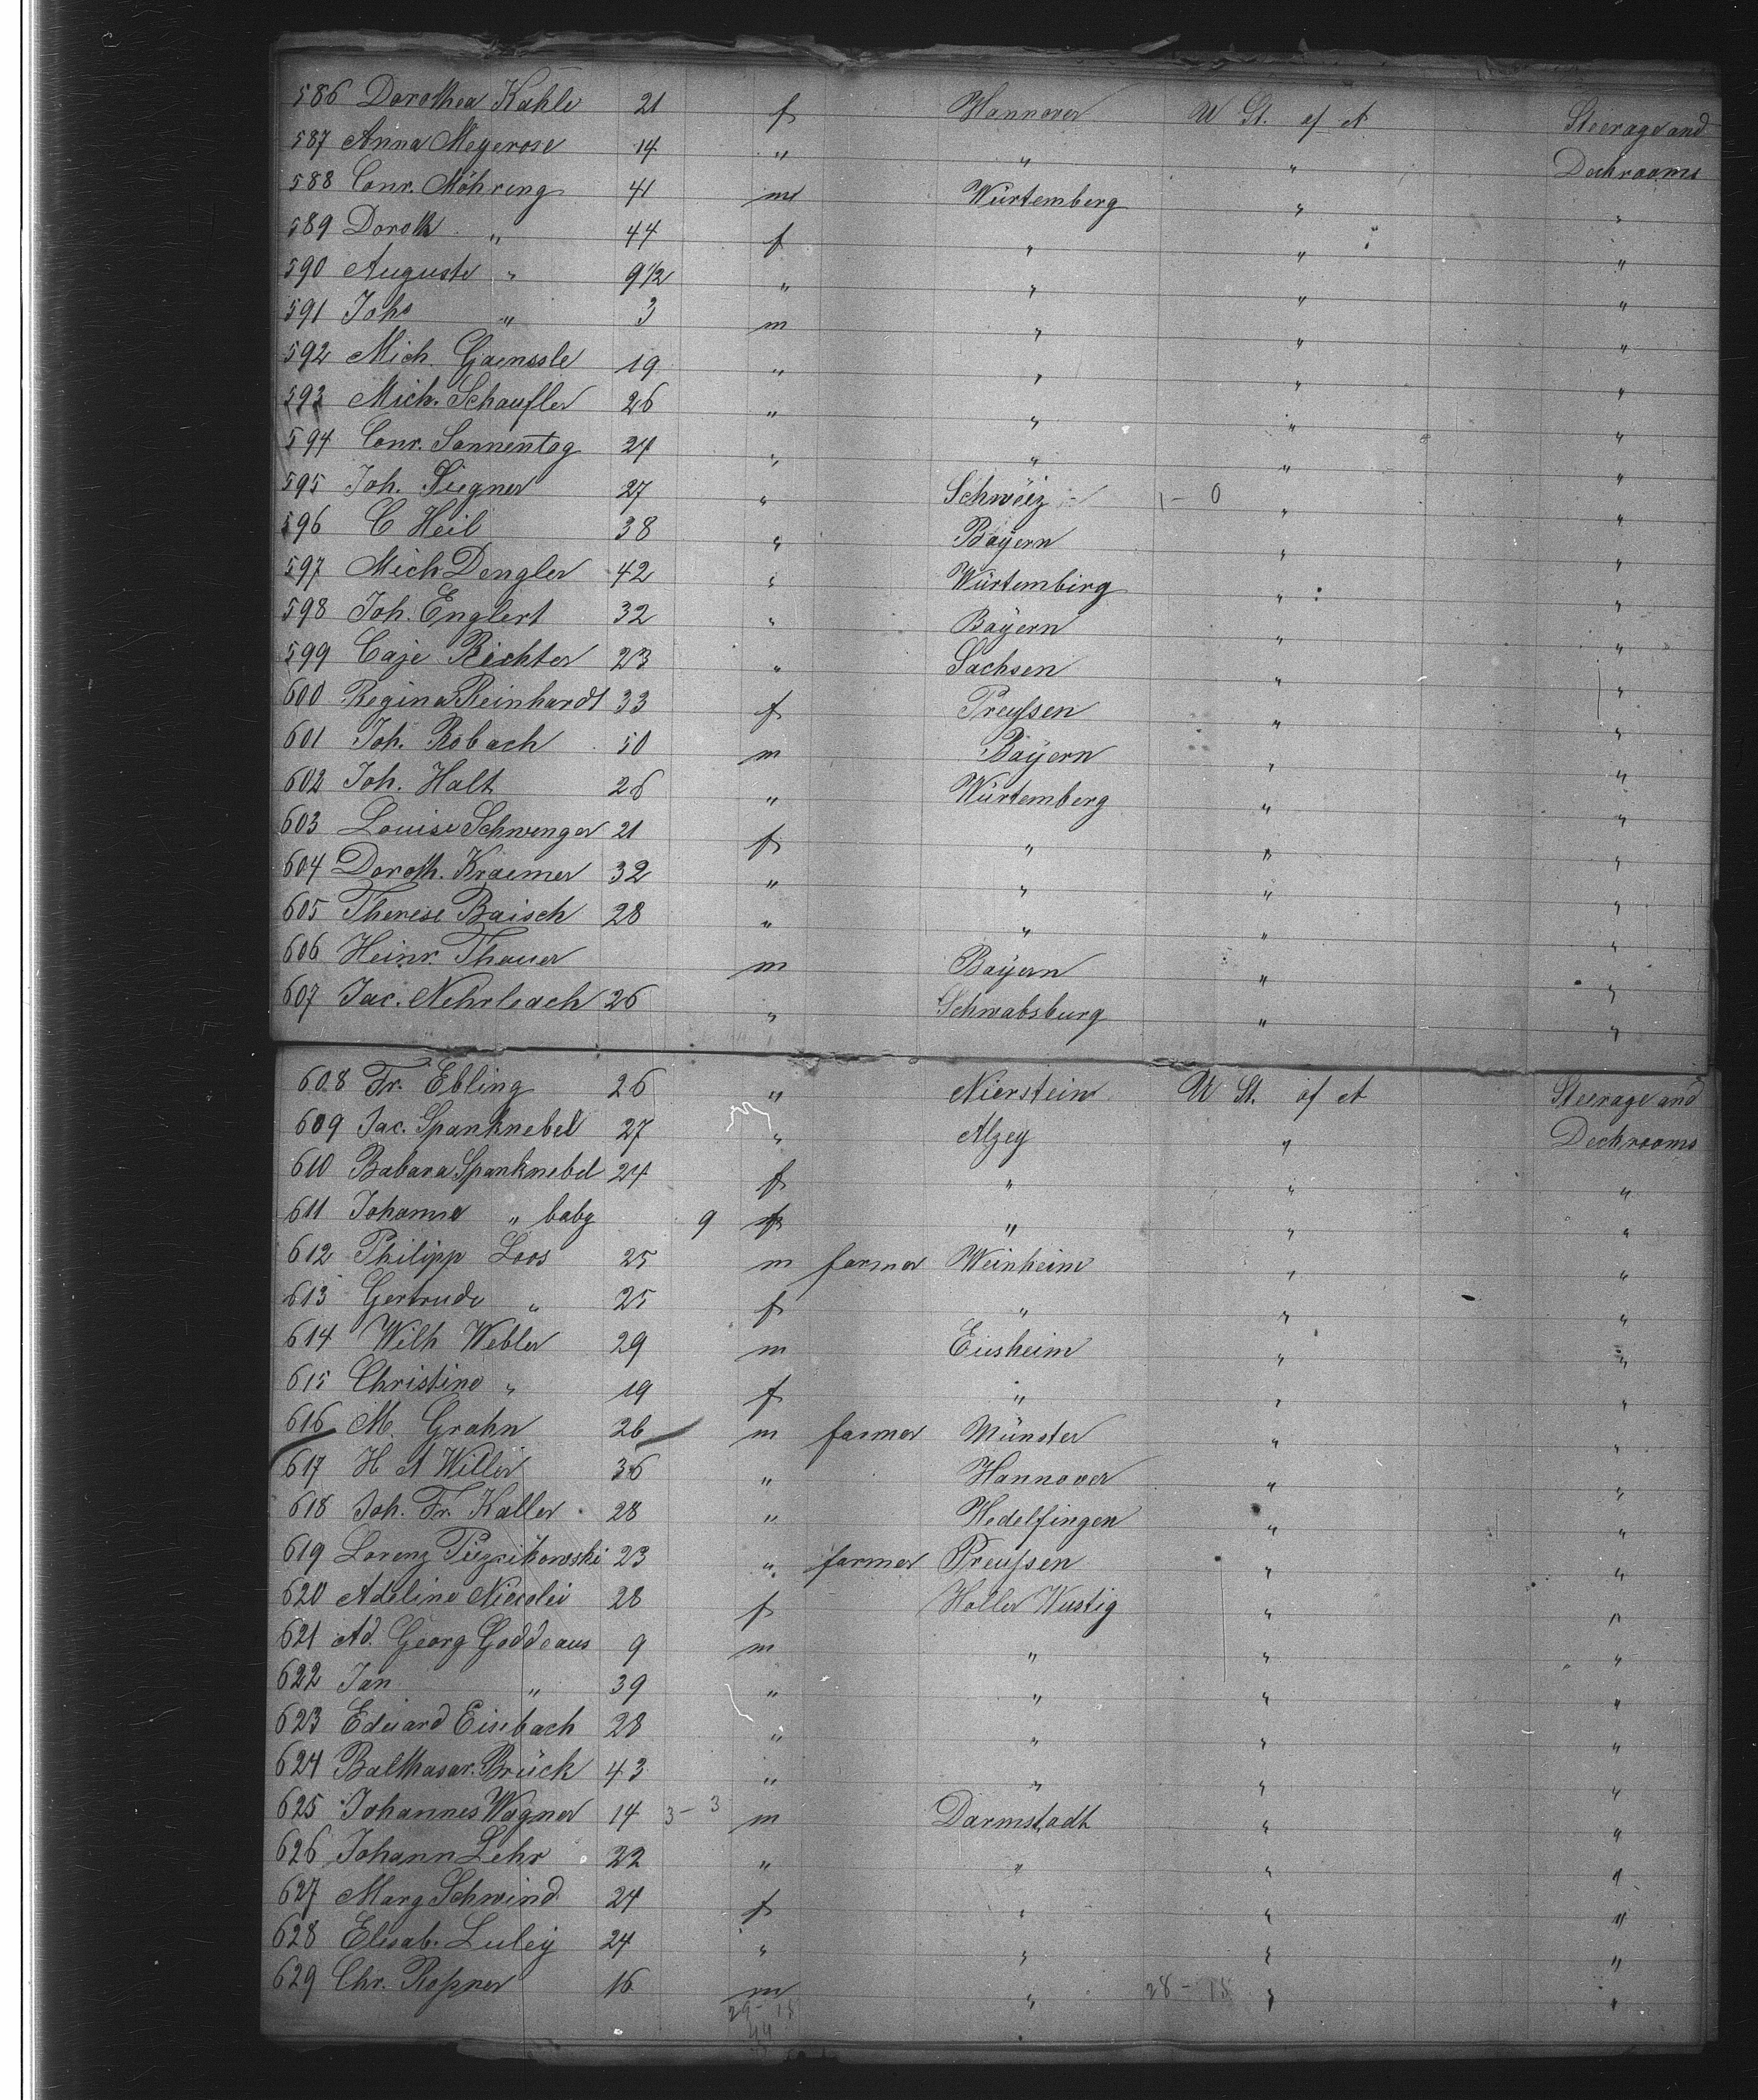 586 Dorothea Kahle 21 f Hannover U St. of A Steerage and
587 Anna Meyerose 14 " " " Deckrooms
588 Conr. Möhring 41 m Würtemberg " "
589 Doroth " 44 f " " "
590 Auguste " 9 1/2 " " " "
591 Johs " 3 m " " "
592 Mich. Gaenssle 19 " " " "
593 Mich. Schaufler 26 " " " "
594 Conr. Sonnentag 24 " " " "
595 Joh. Siegner 27 " Schweiz 1 - 0 " "
596 C Heil 38 " Bayern " "
597 Mich Dengler 42 " Würtemberg " "
598 Joh. Englert 32 " Bayern " "
599 Caje Richter 23 " Sachsen " "
600 Regina Reinhardt 33 f Preussen " "
601 Joh. Robach 50 m Bayern " "
602 Joh. Halt 26 " Würtemberg " "
603 Louise Schwenger 21 f " " "
604 Doroth. Kraemer 32 " " " "
605 Therese Baisch 28 " " " "
606 Heinr. Thauer m Bayern " "
607 Jac. Nehrbach 26 " Schwabsburg " "
608 Fr. Ebling 26 " Nierstein U St. of A Steerage and
609 Jac. Spanknebel 27 " Alzey " Deckrooms
610 Babara Spanknebel 24 f " " "
611 Johanna " baby 9 f " " "
612 Philipp Loos 25 m farmer Weinheim " "
613 Gertrude " 25 f " " "
614 Wilh Webler 29 m Eusheim " "
615 Christine " 19 f " " "
616 M. Grahn 26 m farmer Münster " "
617 H A Willer 36 " Hannover " "
618 Joh. Fr. Kaller 28 " Hedelfingen " "
619 Lorenz 23 " farmer Preussen " "
620 Adeline Nicolei 28 f Holler Wustig " "
621 Ad. Georg Goddeaus 9 m " " "
622 Jan " 39 " " " "
623 Eduard Eisebach 28 " " " "
624 Balthasar Brück 43 " " " "
625 Johannes Wagner 14 3 - 3 m Darmstadt " "
626 Johann Lehr 22 " " " "
627 Marg Schwind 24 f " " "
628 Elisab. Luley 24 " " " "
629 Chr. Ropner 16 m " 28 - 15 " "
29 - 15
44